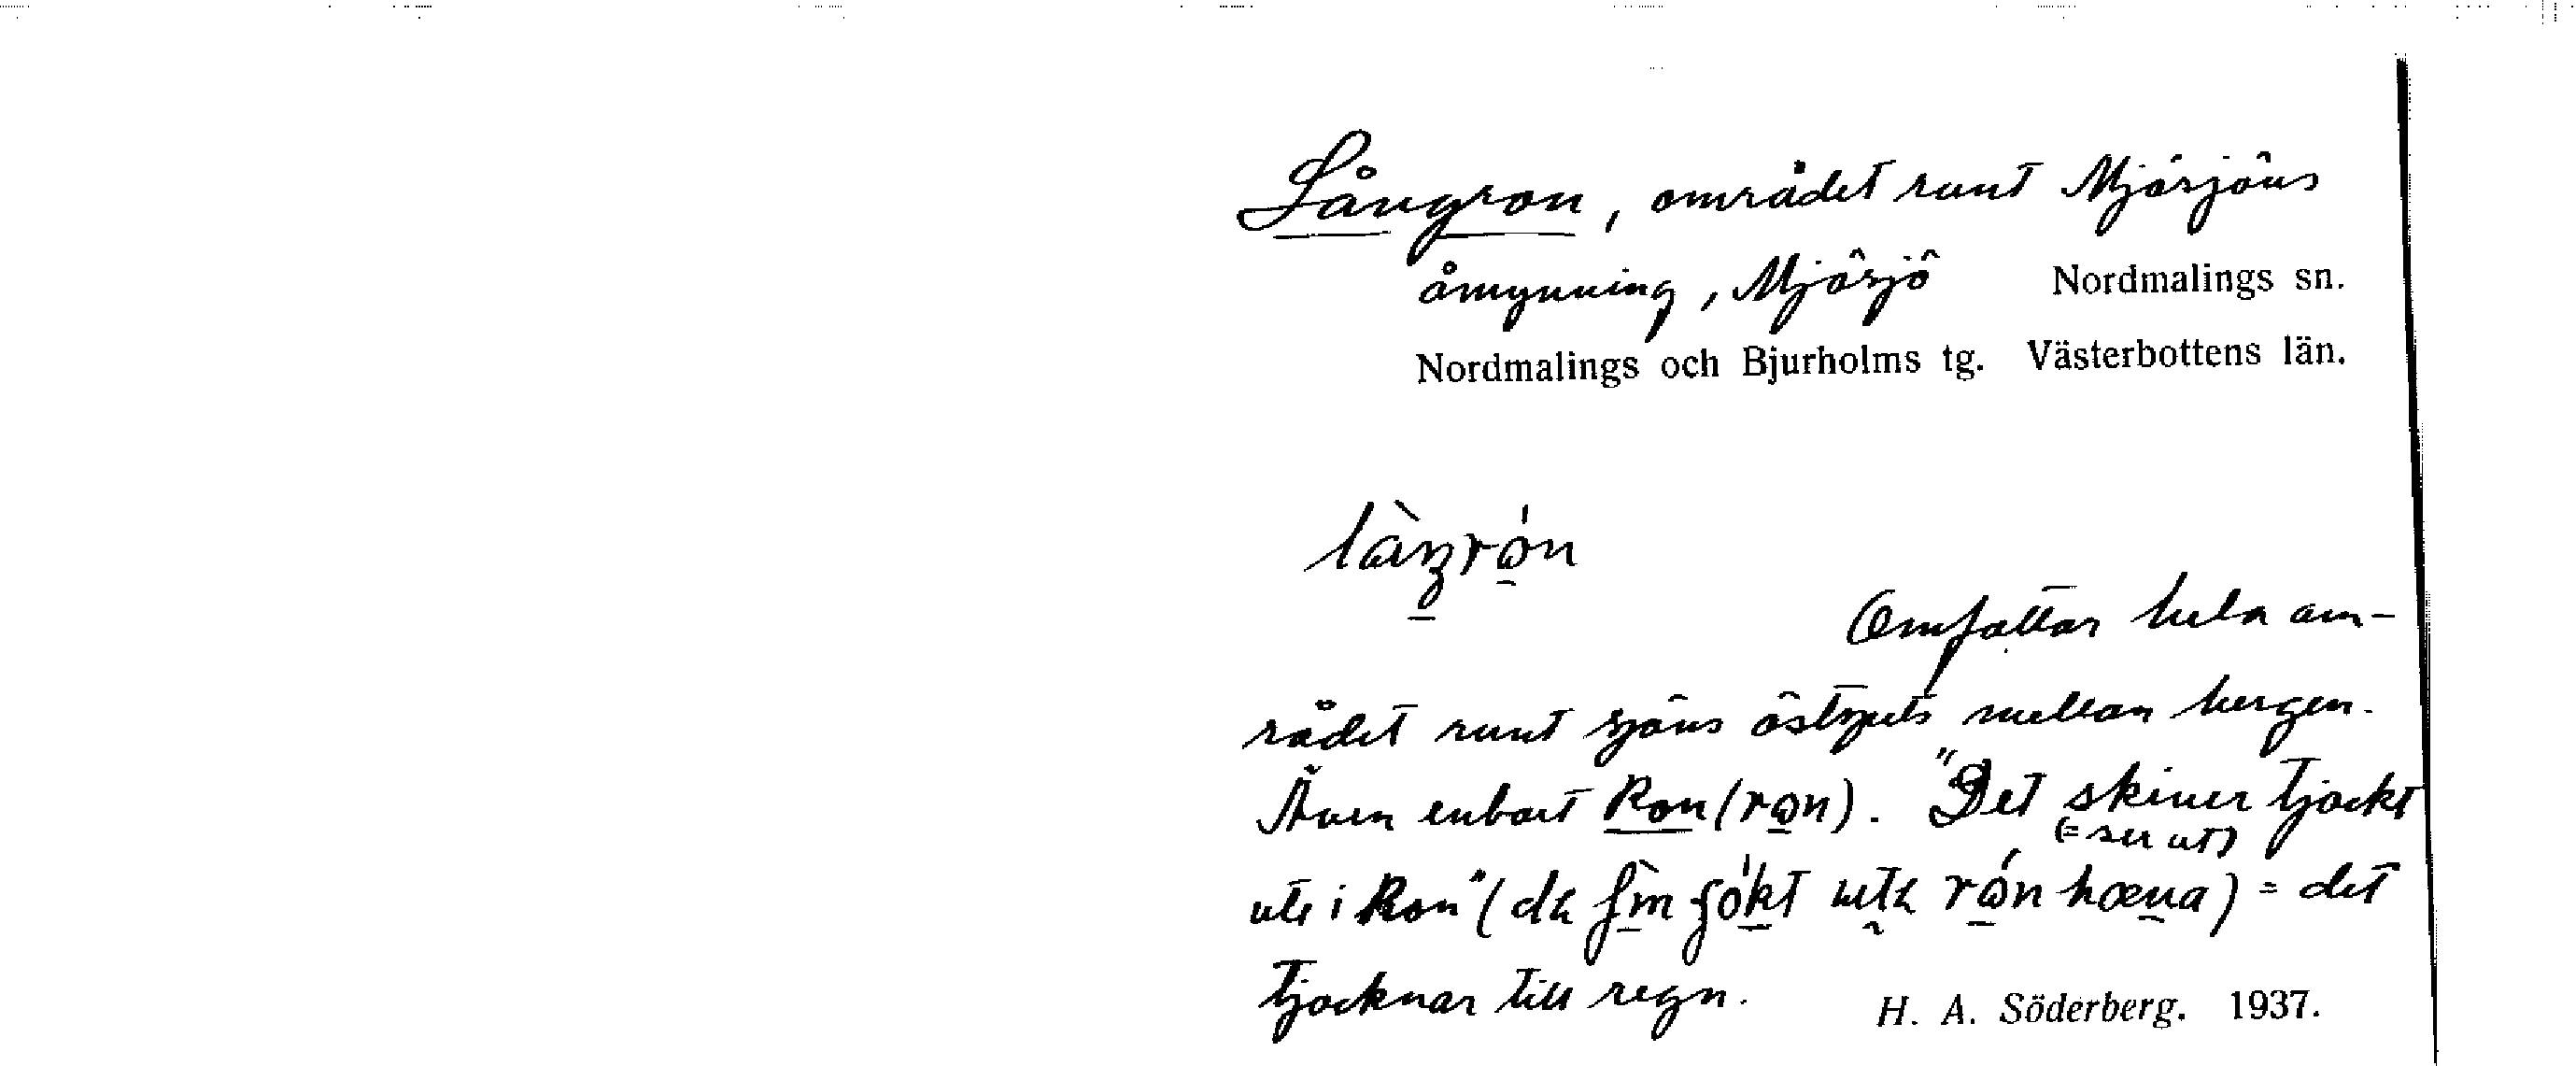 Långron, området runt Mjösjöns
åmynning, Mjösjö Nordmalings sn.
Nordmalings och Bjurholms tg. Västerbottens län.
Omfattar hela om-
rådet runt sjöns östspets mellan bergen.
Även enbart Ron (rɷn). "Det skiner tjockt
(= ser ut)
ute i Ron" ( ) = det
tjocknar till regn. H. A. Söderberg. 1937.